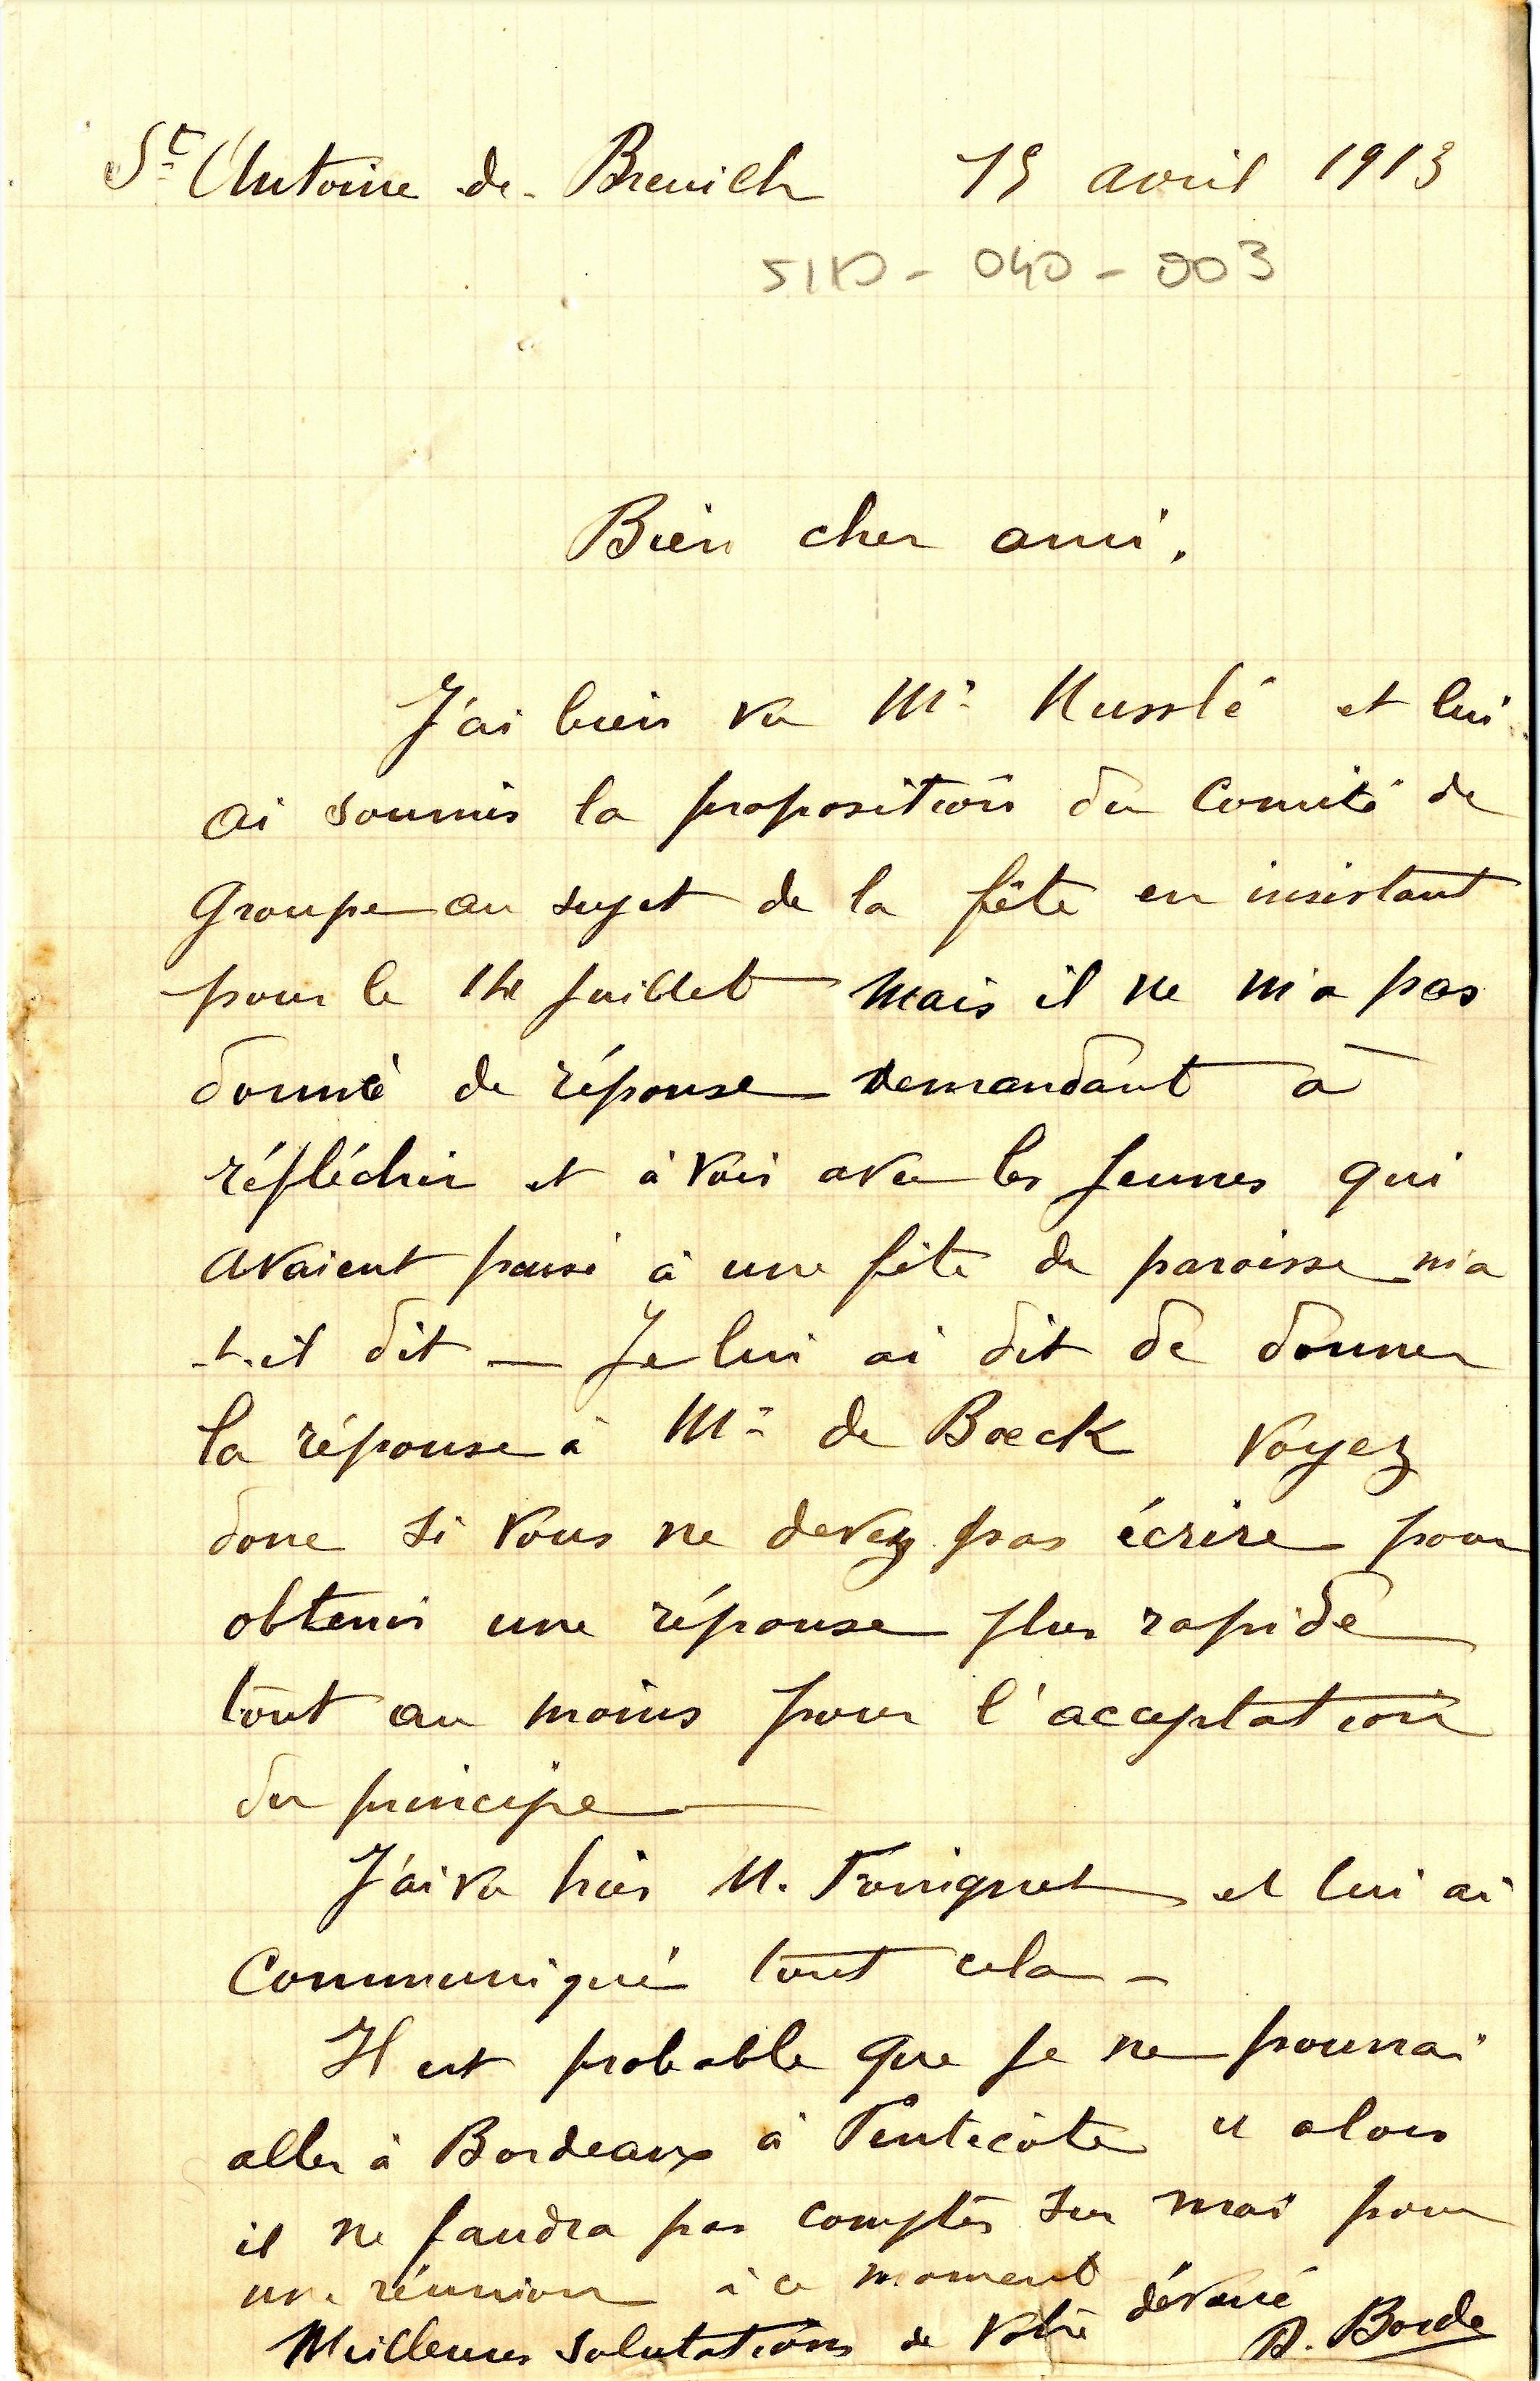 St Antoine de Breuilh 15 avril 1913
51D - 040 - 003
Bien cher ami.
J'ai bien vu Mr Nusslé et lui
ai soumis la proposition du Comité de
Groupe au sujet de la fête en insistant
pour le 14 Juillet mais il ne m'a pas
donné de réponse demandant à
réfléchir et à voir avec les jeunes qui
avaient pensé à une fête de paroisse m'a
-t-il dit — Je lui ai dit de donner
la réponse à Mr de Boeck Voyez
donc si vous ne devez pas écrire pour
obtenir une réponse plus rapide
tout au moins pour l'acceptation
du principe —
J'ai vu hier M. et lui ai
communiqué tout cela —
Il est probable que je ne pourrai
aller à Bordeaux à Pentecôte et alors
il ne faudra pas compter sur moi pour
une réunion à ce moment
Meilleures salutations de votre dévoué
A. Borde